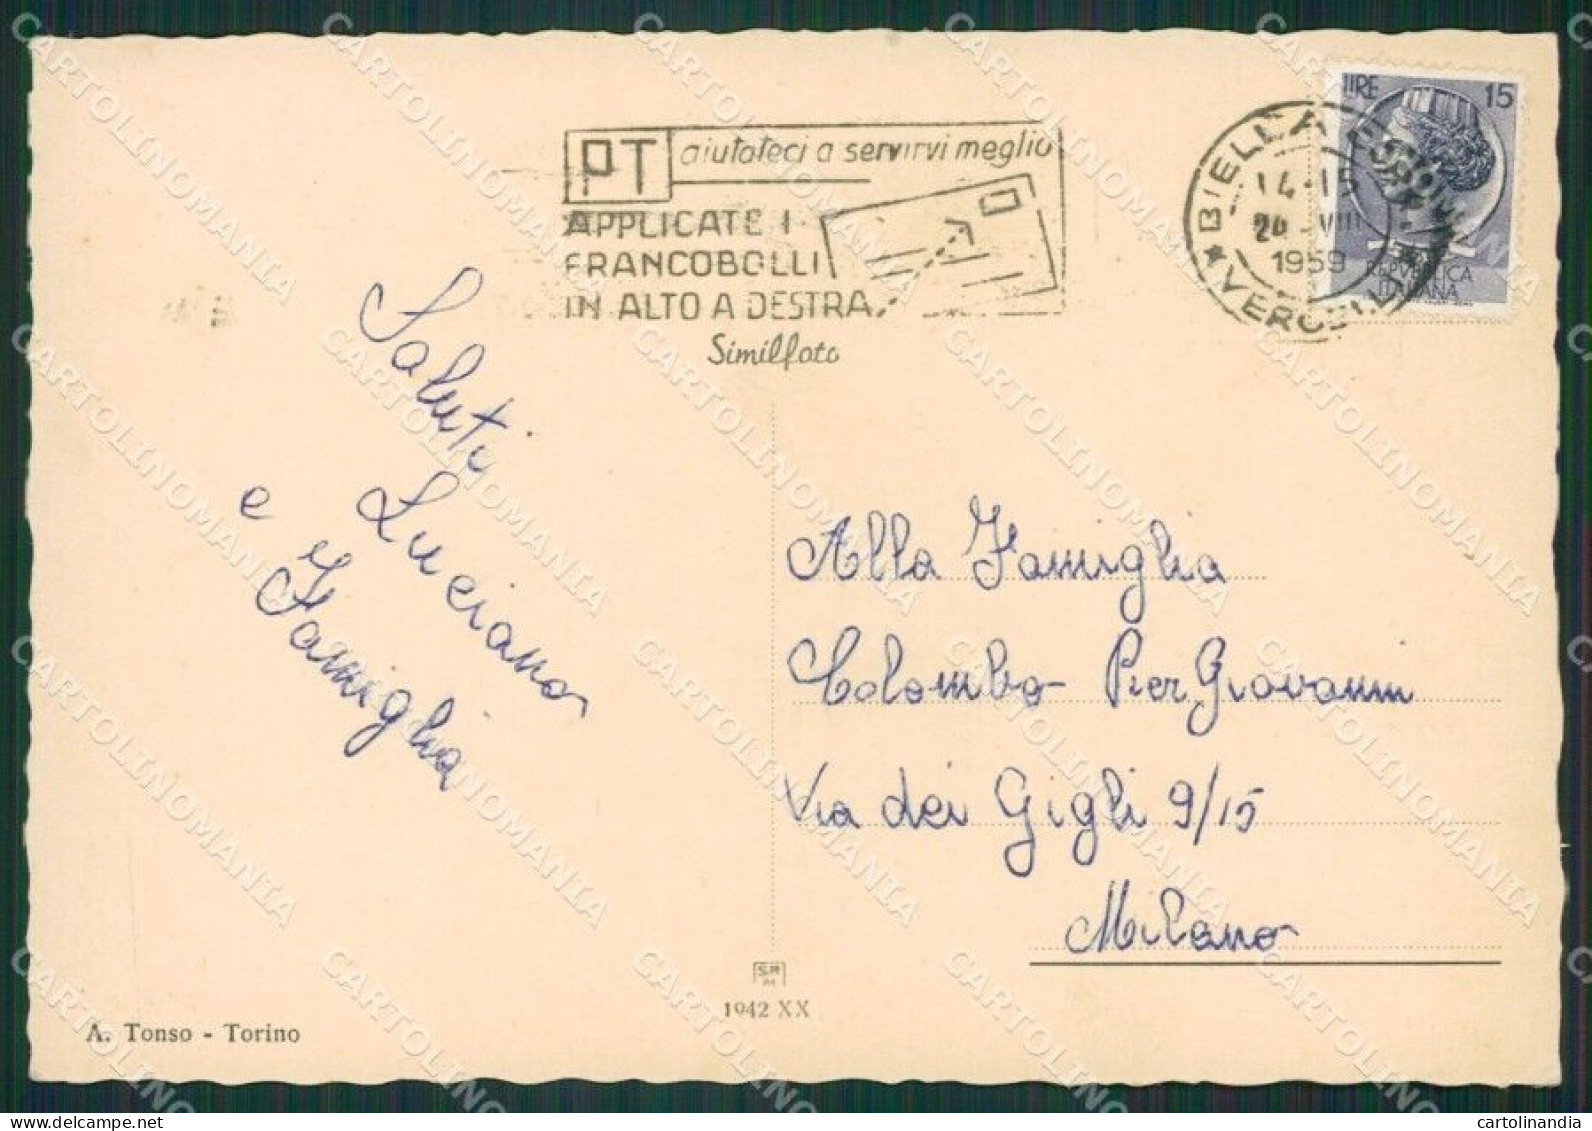 PT aiutateci a servirvi meglio
APPLICATE I
FRANCOBOLLI
IN ALTO A DESTRA
Similfoto
BIELLA
14-15
24 VIII
1959
VERCELLI
LIRE 15
REPVBBLICA
ITALIANA
Saluti
Luciano
e Famiglia
Alla Famiglia
Colombo Pier Giovanni
Via dei Gigli 9/15
Milano
1942 XX
A. Tonso - Torino
CARTOLINOMANIA
delcampe.net
cartolinandia